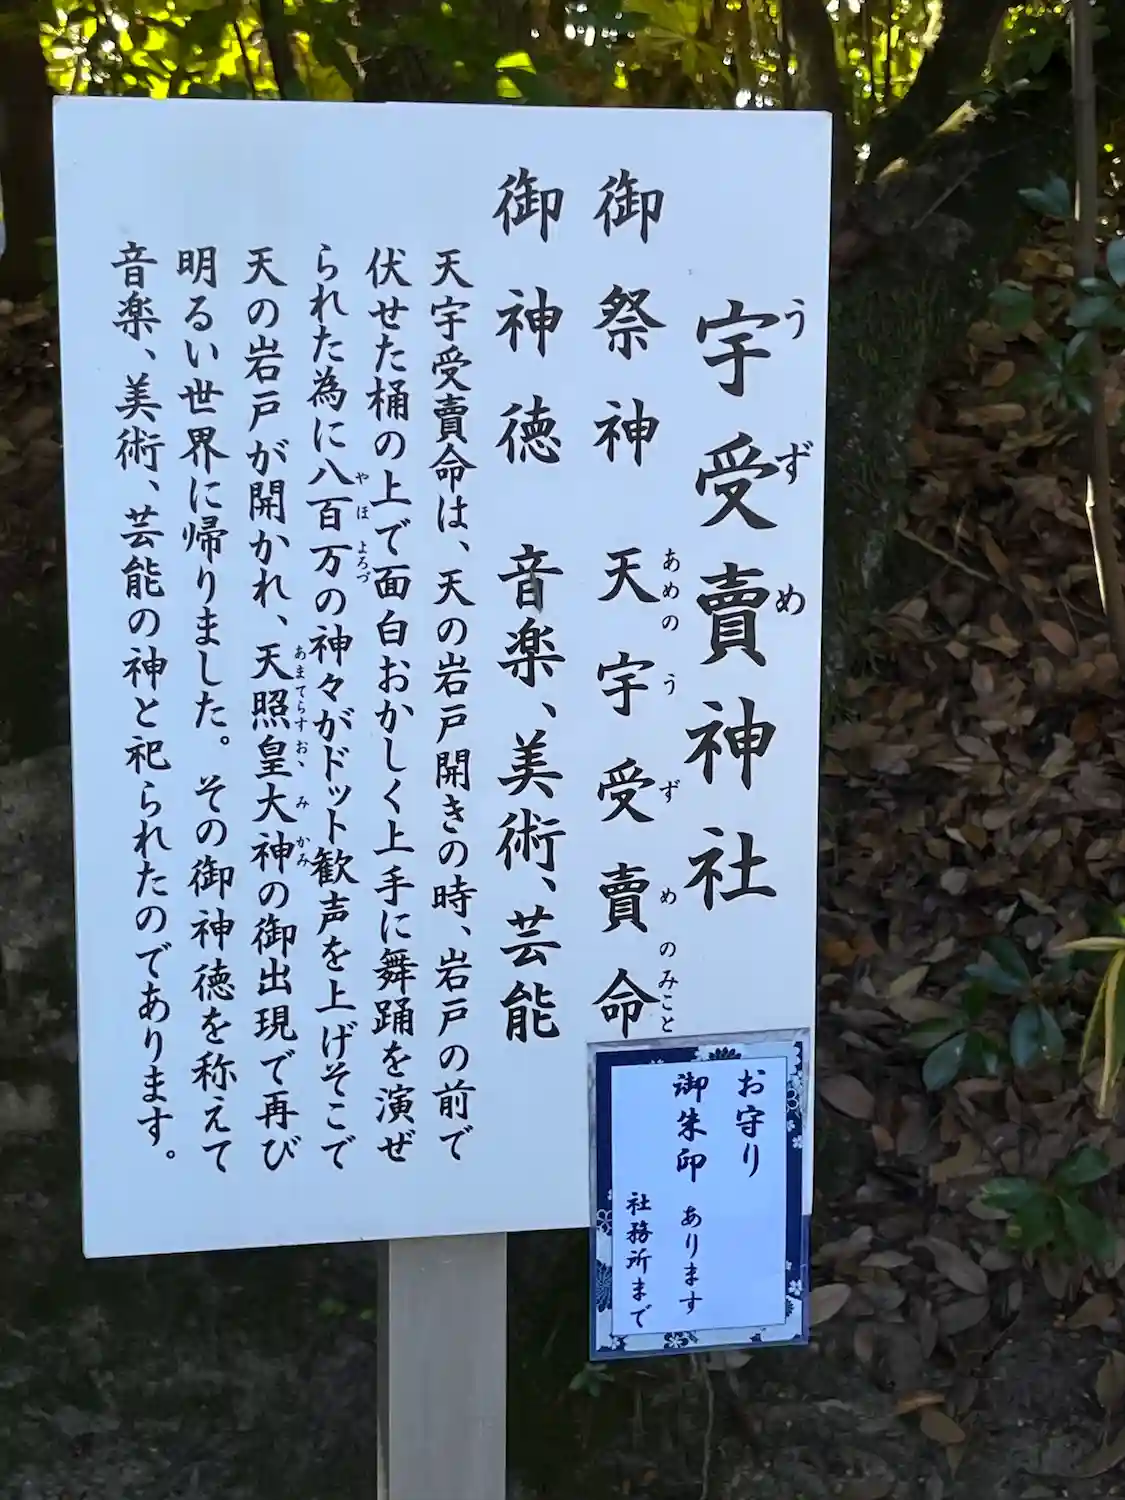 宇受賣神社
うずめ
御祭神 天宇受賣命
あめの う ず め のみこと
御神徳 音楽、美術、芸能
天宇受賣命は、天の岩戸開きの時、岩戸の前で
伏せた桶の上で面白おかしく上手に舞踊を演ぜ
られた為に八百万の神々がドット歓声を上げそこで
やほよろづ
天の岩戸が開かれ、天照皇大神の御出現で再び
あまてらすおゝみかみ
明るい世界に帰りました。その御神徳を称えて
音楽、美術、芸能の神と祀られたのであります。
お守り
御朱印 あります
社務所まで